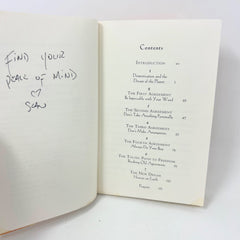 FIND YOUR
PEACE OF MIND
SEAN
Contents
INTRODUCTION
1
Domestication and the
Dream of the Planet
1
2
THE FIRST AGREEMENT
Be Impeccable with Your Word
3
THE SECOND AGREEMENT
Don't Take Anything Personally
4
THE THIRD AGREEMENT
Don't Make Assumptions
5
THE FOURTH AGREEMENT
Always Do Your Best
6
THE TOLTEC PATH TO FREEDOM
Breaking Old Agreements
7
THE NEW DREAM
Heaven on Earth
Prayers